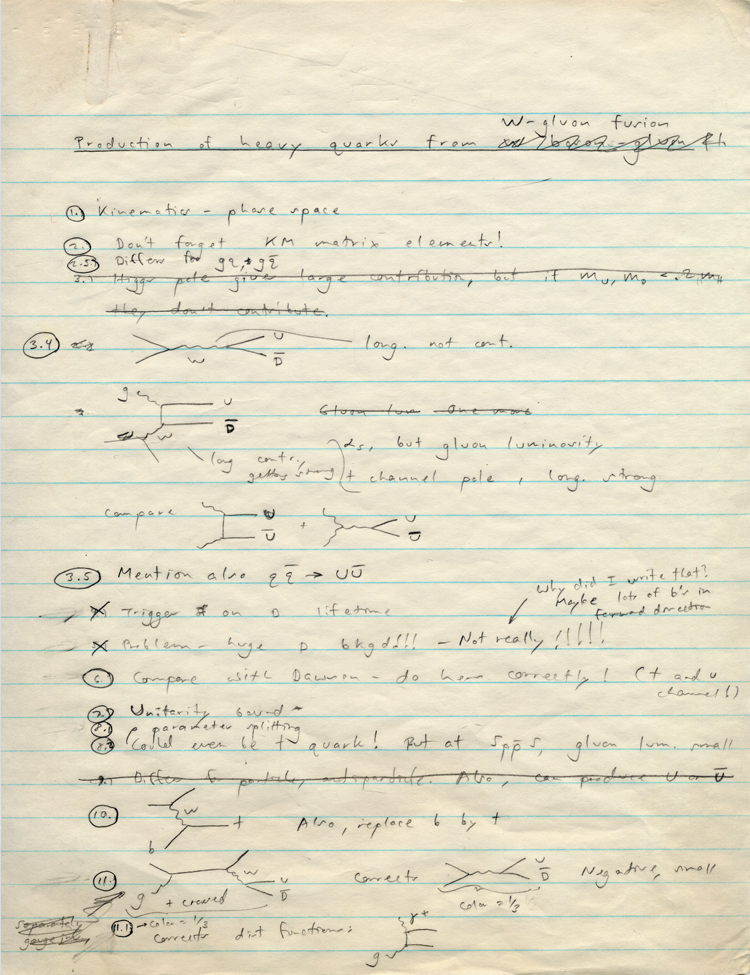 W-gluon fusion
Production of heavy quarks from
1. Kinematics - phase space
2. Don't forget KM matrix elements!
2.5. Differs for gq, gq̄
3. Higgs pole gives large contribution, but if m_U, m_D < .2 m_H
they don't contribute.
3.4 W U D̄ long. not cont.
g U D̄ W
Gluon lum One more
long contr. getting strong
αs, but gluon luminosity
t channel pole, long. strong
compare U Ū + U Ū
3.5 Mention also qq̄ → UŪ
Why did I write that?
Maybe lots of b's in
forward direction
Trigger on D lifetime
Problem - huge D bkgd!!! - Not really!!!!!
6. Compare with Dawson - do hers correctly! (t and u
channel!)
7. Unitarity bound
8.1 ρ parameter splitting
8.2 Could even be t quark! But at Spp̄S, gluon lum. small
9. Differs for particle, antiparticle. Also, can produce U or Ū
10. W t b Also, replace b by t
11. g W U D̄ + crossed corrects U D̄ Negative, small
color = 1/3
separately
gauge
11.1 → color = 1/3
corrects dist functions:
g t